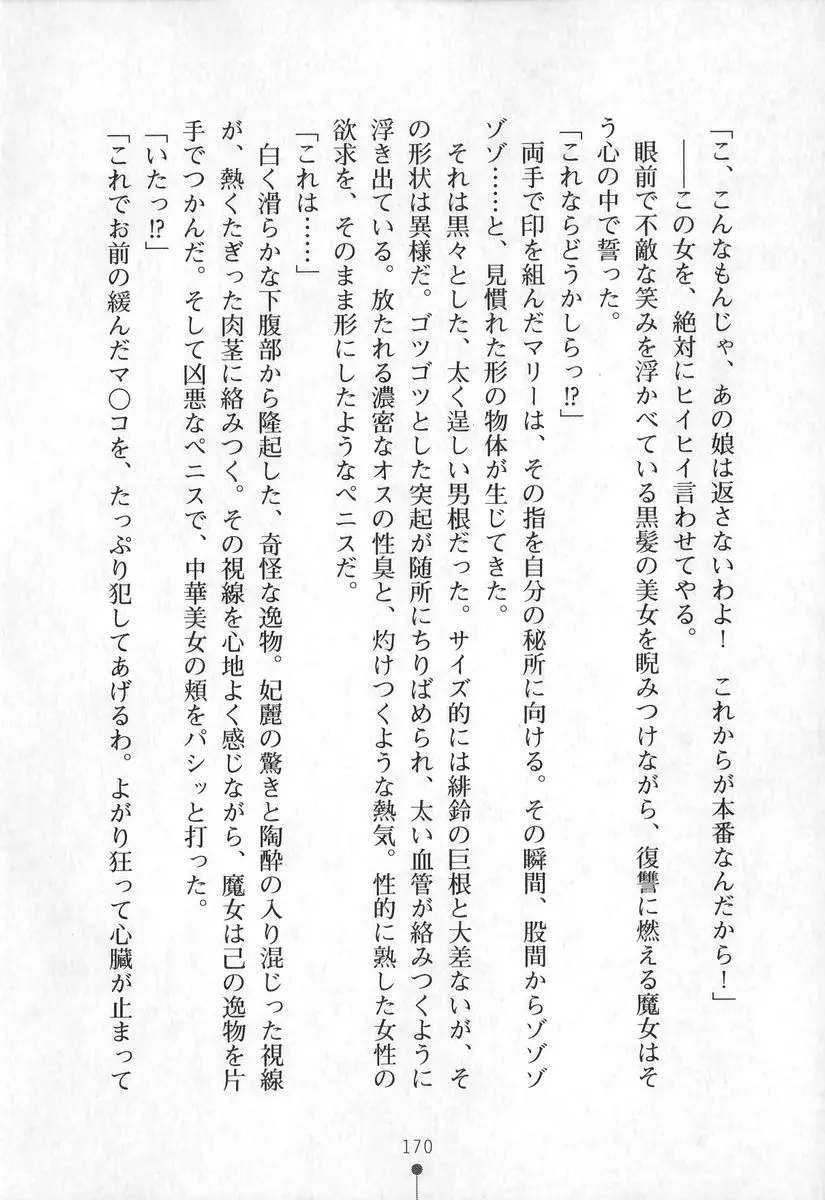 「こ、こんなもんじゃ、あの娘は返さないわよ！　これからが本番なんだから！」
――この女を、絶対にヒイヒイ言わせてやる。
眼前で不敵な笑みを浮かべている黒髪の美女を睨みつけながら、復讐に燃える魔女はそ
う心の中で誓った。
「これならどうかしらっ!?」
両手で印を組んだマリーは、その指を自分の秘所に向ける。その瞬間、股間からゾゾゾ
ゾゾ……と、見慣れた形の物体が生じてきた。
それは黒々とした、太く逞しい男根だった。サイズ的には緋鈴の巨根と大差ないが、そ
の形状は異様だ。ゴツゴツとした突起が随所にちりばめられ、太い血管が絡みつくように
浮き出ている。放たれる濃密なオスの性臭と、灼けつくような熱気。性的に熟した女性の
欲求を、そのまま形にしたようなペニスだ。
「これは……」
白く滑らかな下腹部から隆起した、奇怪な逸物。妃麗の驚きと陶酔の入り混じった視線
が、熱くたぎった肉茎に絡みつく。その視線を心地よく感じながら、魔女は己の逸物を片
手でつかんだ。そして凶悪なペニスで、中華美女の頬をパシッと打った。
「いたっ!?」
「これでお前の緩んだマ〇コを、たっぷり犯してあげるわ。よがり狂って心臓が止まって
170